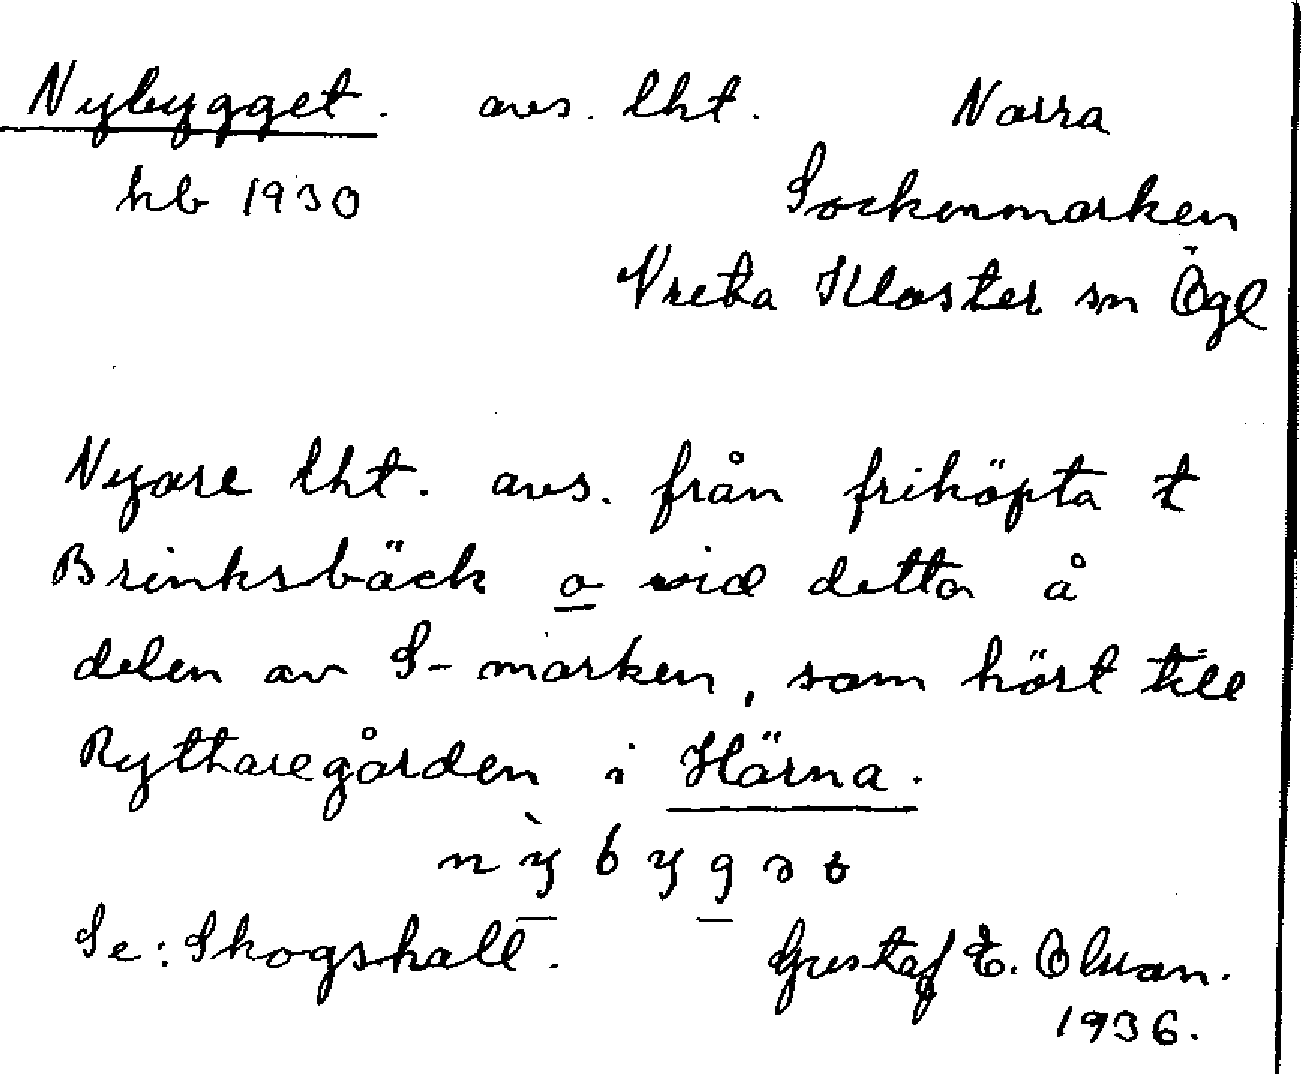 Nybygget. avs. lht. Norra
kb 1930 Sockenmarken
Vreta Kloster sn Ögl
Nyare lht. avs. från friköpta t
Brinksbäck o vid detta å
delen av S-marken, som hört till
Ryttaregården i Härna.
nỳbygət
Se: Skogshall. Gustaf E. Olsson.
1936.